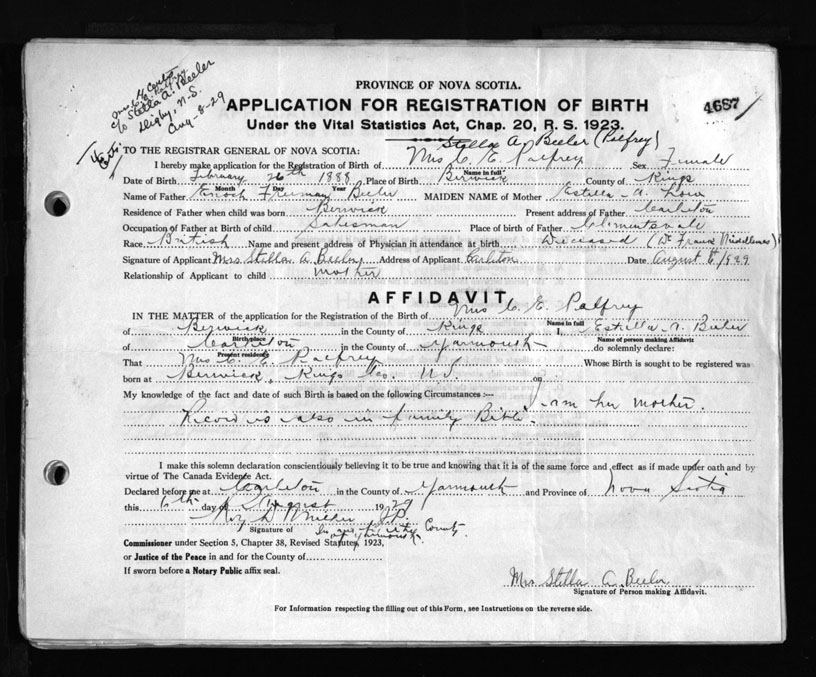 Stella A. Beeler
Digby, N.S.
Aug-8-29
PROVINCE OF NOVA SCOTIA.
APPLICATION FOR REGISTRATION OF BIRTH
4687
Under the Vital Statistics Act, Chap. 20, R. S. 1923.
Stella A. Beeler (Palfrey)
TO THE REGISTRAR GENERAL OF NOVA SCOTIA:
I hereby make application for the Registration of Birth of Mrs C. E. Palfrey Sex Female
Name in full
Date of Birth February 26th 1888 Place of Birth Berwick County of Kings
Month Day Year
Name of Father Enoch Freeman Beeler MAIDEN NAME of Mother Estella A.
Residence of Father when child was born Berwick Present address of Father Carleton
Occupation of Father at Birth of child Salesman Place of birth of Father Clementsvale
Race British Name and present address of Physician in attendance at birth Deceased (Dr Frank Middlemas)
Signature of Applicant Mrs. Stella A. Beeler Address of Applicant Carleton Date August 6th/1929
Relationship of Applicant to child mother
AFFIDAVIT
IN THE MATTER of the application for the Registration of Birth of Mrs C. E. Palfrey
Name in full
of Berwick in the County of Kings I, Estella A. Beeler
Birthplace Name of person making Affidavit
of Carleton in the County of Yarmouth do solemnly declare:
Present residence
That Mrs C. E. Palfrey Whose Birth is sought to be registered was
born at Berwick, Kings Co. N.S. on
My knowledge of the fact and date of such Birth is based on the following Circumstances :— I am her mother.
Record is also in family Bible.
I make this solemn declaration conscientiously believing it to be true and knowing that it is of the same force and effect as if made under oath and by
virtue of The Canada Evidence Act.
Declared before me at Carleton in the County of Yarmouth and Province of Nova Scotia
this 6th day of August 1929
Roy D Miller J.P.
Signature of In and for the County
of Yarmouth.
Commissioner under Section 5, Chapter 38, Revised Statutes, 1923,
or Justice of the Peace in and for the County of
If sworn before a Notary Public affix seal.
Mrs Stella A. Beeler
Signature of Person making Affidavit.
For Information respecting the filling out of this Form, see Instructions on the reverse side.